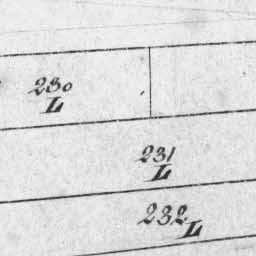 230
L
231
L
232
L